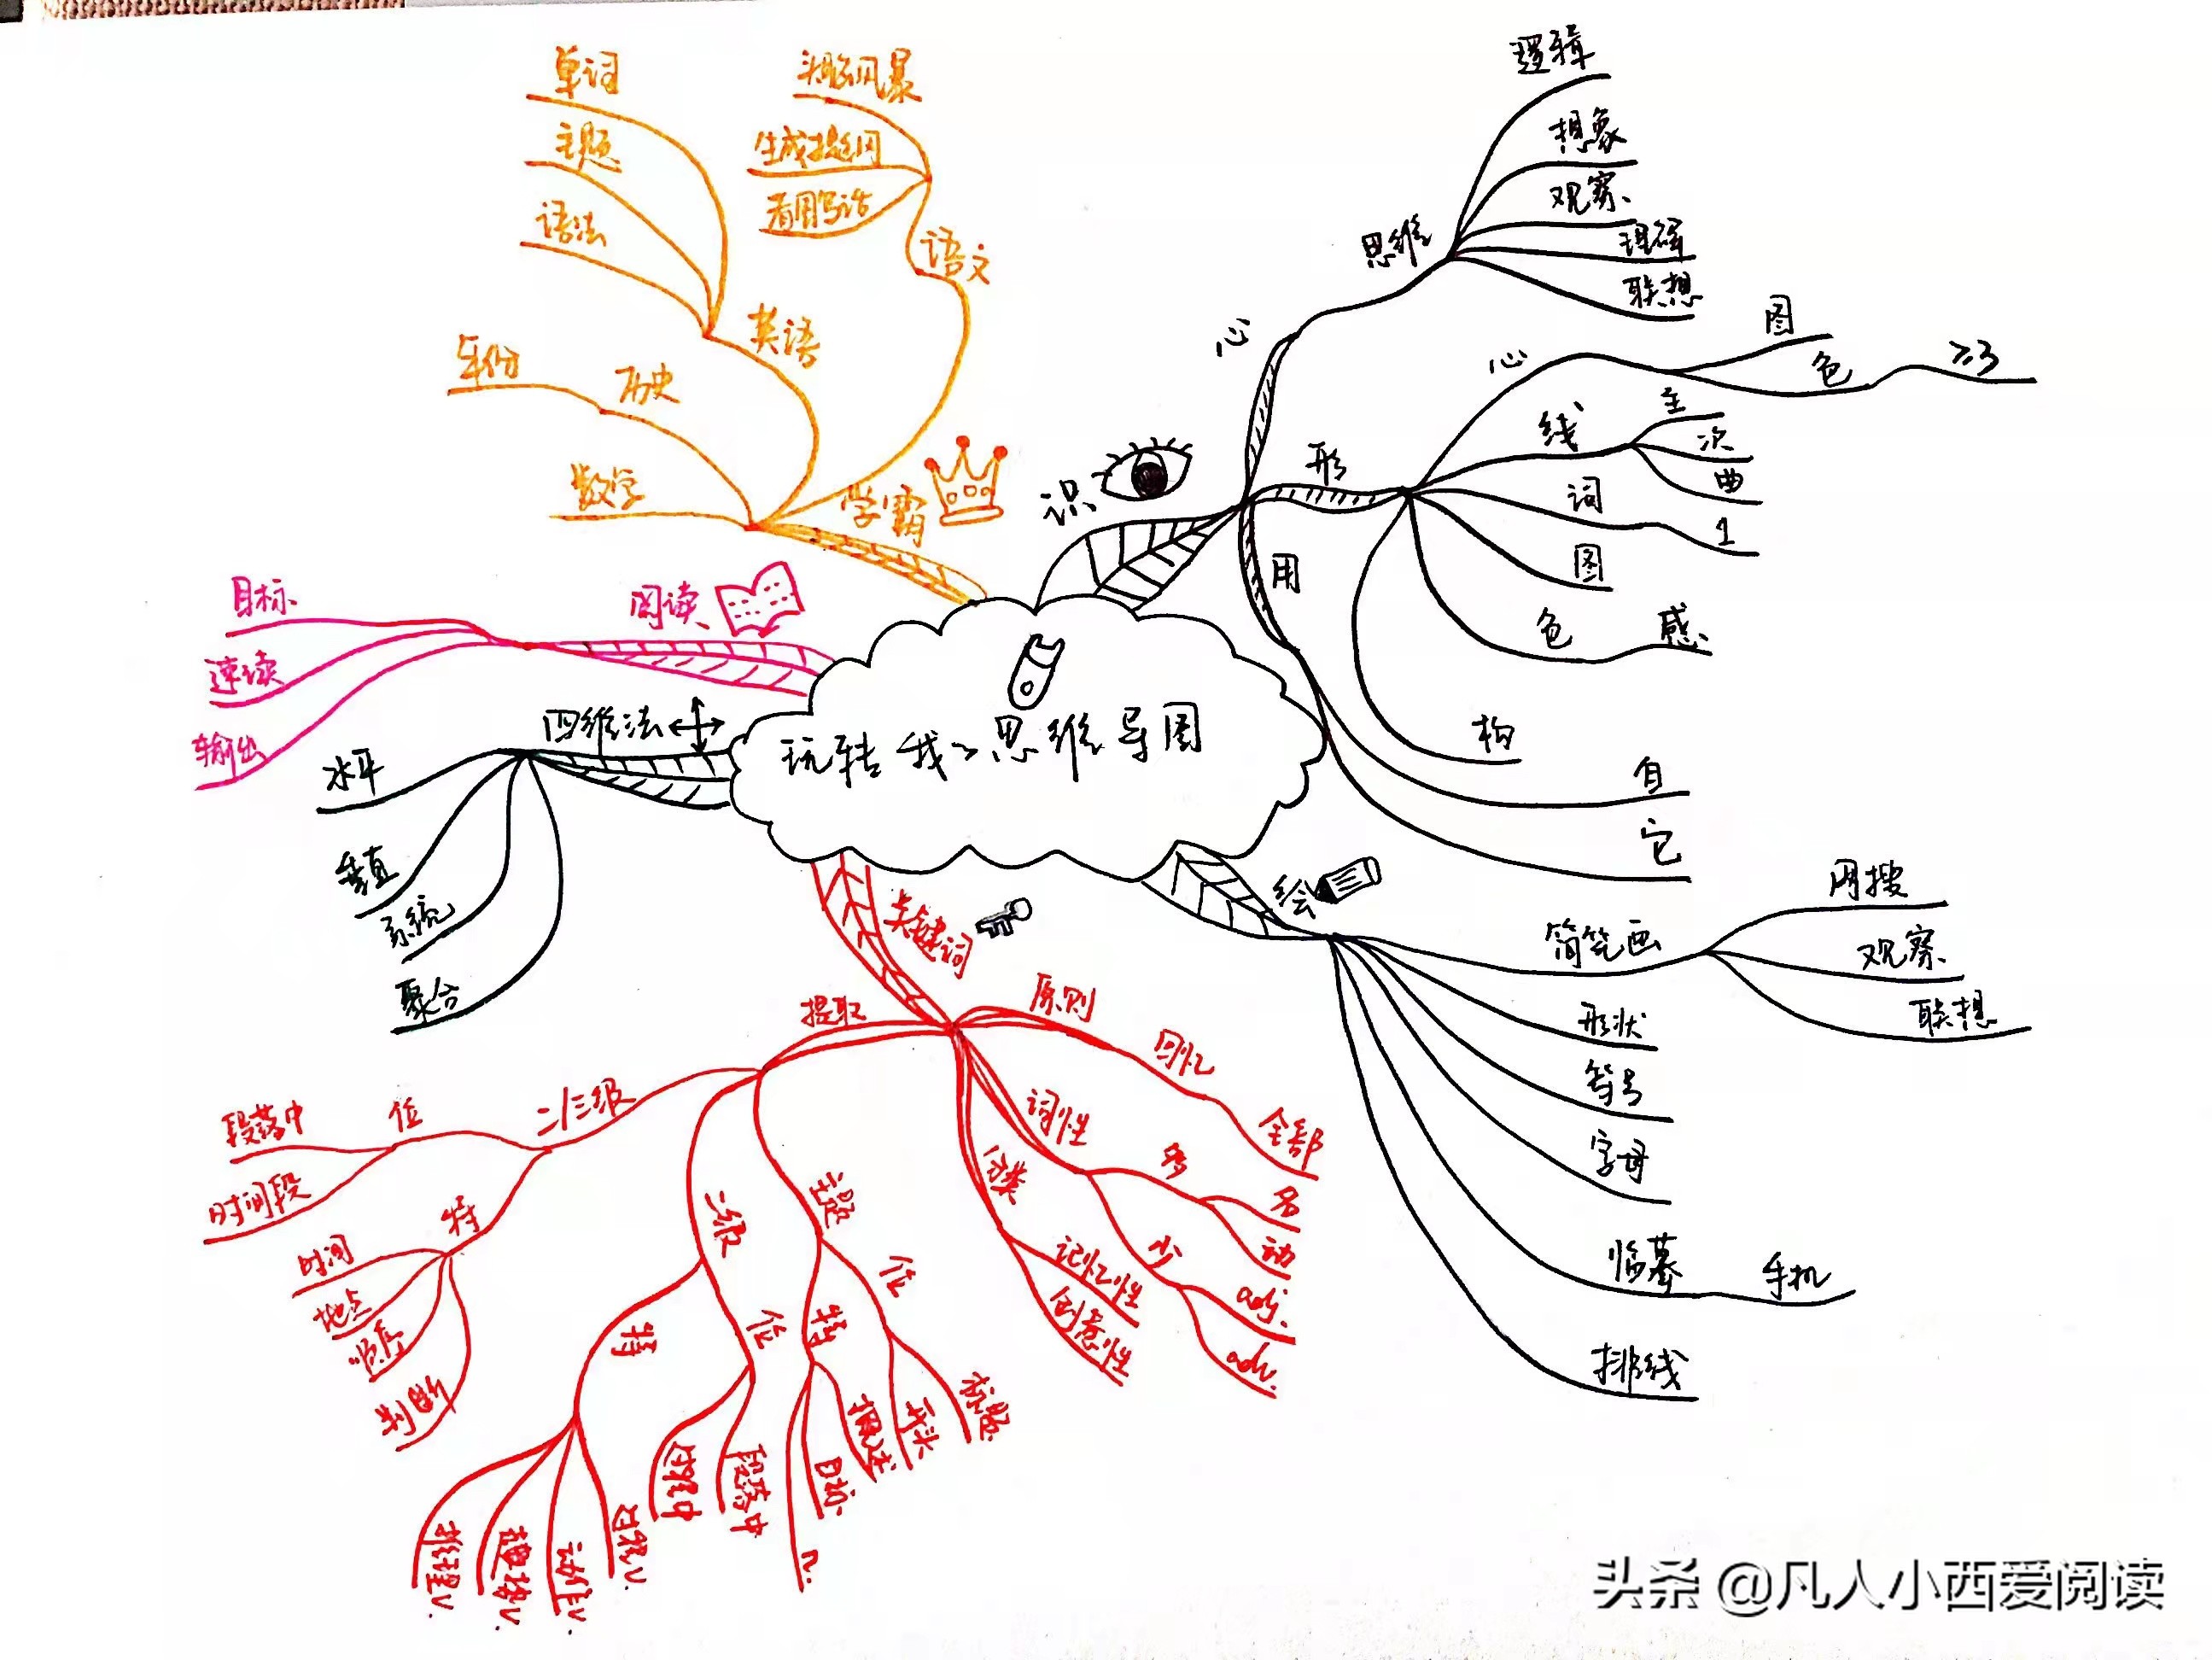 玩转我的思维导图
识
心
思维
逻辑
想象
观察
理解
联想
形
心
图
色
≥3
线
主
次
曲
词
1
图
色
感
构
用
自
它
绘
简笔画
网搜
观察
联想
形状
符号
字母
临摹
手机
排线
关键词
原则
回忆
全部
词性
多
名
动
少
adj.
adv.
分类
记忆性
创意性
提取
主题
位
标题
开头
特
概述
目标
n.
二级
位
段落中
特
动作v.
二/三级
位
段落中
时间段
特
时间
地点
顺序
判断
四维法
水平
垂直
系统
聚合
阅读
目标
速读
输出
学霸
语文
头脑风暴
生成提纲
看图写话
英语
单词
主题
语法
历史
年份
数学
头条 @凡人小西爱阅读